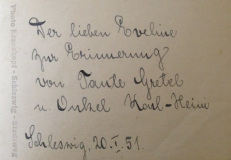 Der lieben Eveline
zur Erinnerung
von Tante Gretel
u. Onkel Karl-Heinz
Schleswig, 20.I.51.